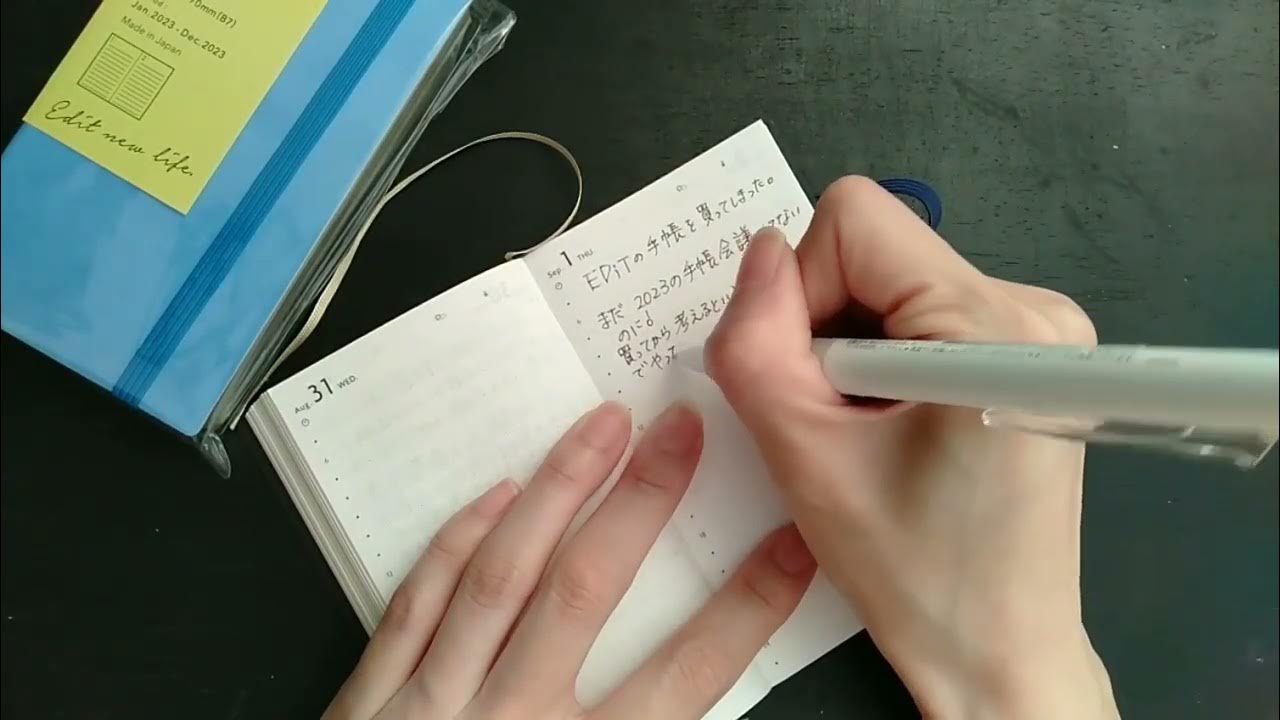 70mm(B7)
Jan.2023-Dec.2023
Made in Japan
Edit new life.
Aug. 31 WED.
6
12
Sep. 1 THU.
EDiTの手帳を買ってしまった。
まだ 2023の手帳会議 てない
のに!
買ってから考えるとい
でやって
12
18